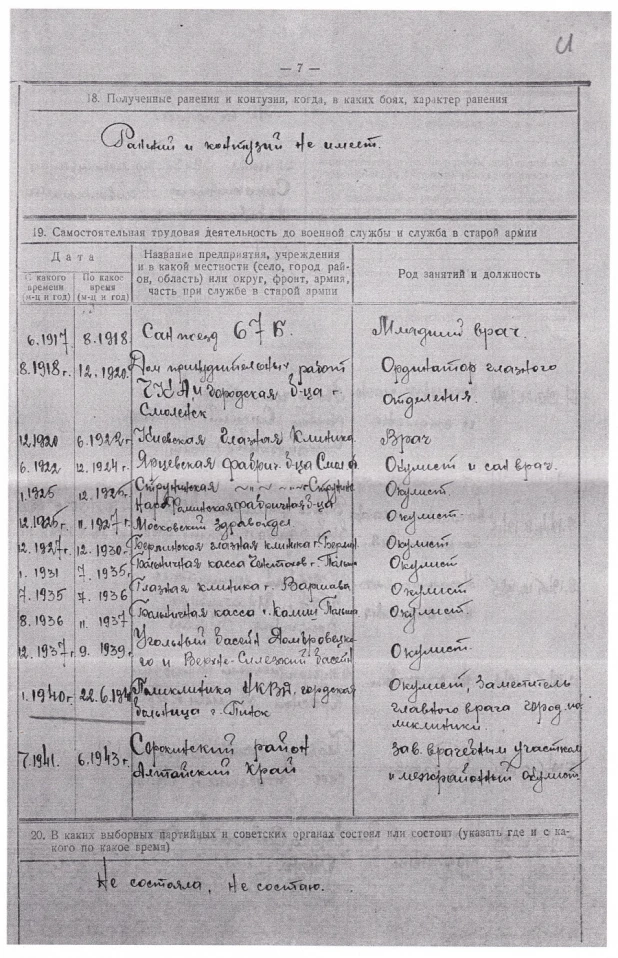 — 7 —
18. Полученные ранения и контузии, когда, в каких боях, характер ранения
Ранений и контузий не имеет.
19. Самостоятельная трудовая деятельность до военной службы и служба в старой армии
Дата
С какого времени (м-ц и год)
По какое время (м-ц и год)
Название предприятия, учреждения
и в какой местности (село, город рай-
он, область) или округ, фронт, армия,
часть при службе в старой армии
Род занятий и должность
6.1917 8.1918 Сан поезд 67 Б. Младший врач.
8.1918 г. 12.1920. Дом принудительных работ Ординатор глазного
и городская б-ца г. отделения.
Смоленск
12.1920 6.1922 г. Киевская Глазная Клиника Врач
6.1922 12.1924 г. Ярцевская фабрич. б-ца Окулист и сан врач.
1.1925 12.1925 г. Струнинская Окулист.
фабричная б-ца
12.1925 г. 11.1927 г. Московский здравотдел Окулист.
12.1927 г. 12.1930 г. Берлинская глазная клиника г. Берлин Окулист
1.1931 7.1935 г. Больничная касса г. Окулист
7.1935 7.1936 Глазная клиника г. Варшава Окулист
8.1936 11.1937 Больничная касса г. Окулист
12.1937 г. 9.1939 г. Угольный басейн Домбровецко- Окулист.
го и Верхне-Силезский басейн
1.1940 г. 22.6.1941 Поликлиника НКВД, городская Окулист, Заместитель
больница г. Пинск главного врача город. по-
ликлиники.
7.1941. 6.1943 г. Сорокинский район Зав. врачебным участком
Алтайский Край и межрайонный окулист
20. В каких выборных партийных и советских органах состоял или состоит (указать где и с ка-
кого по какое время)
Не состояла, не состою.